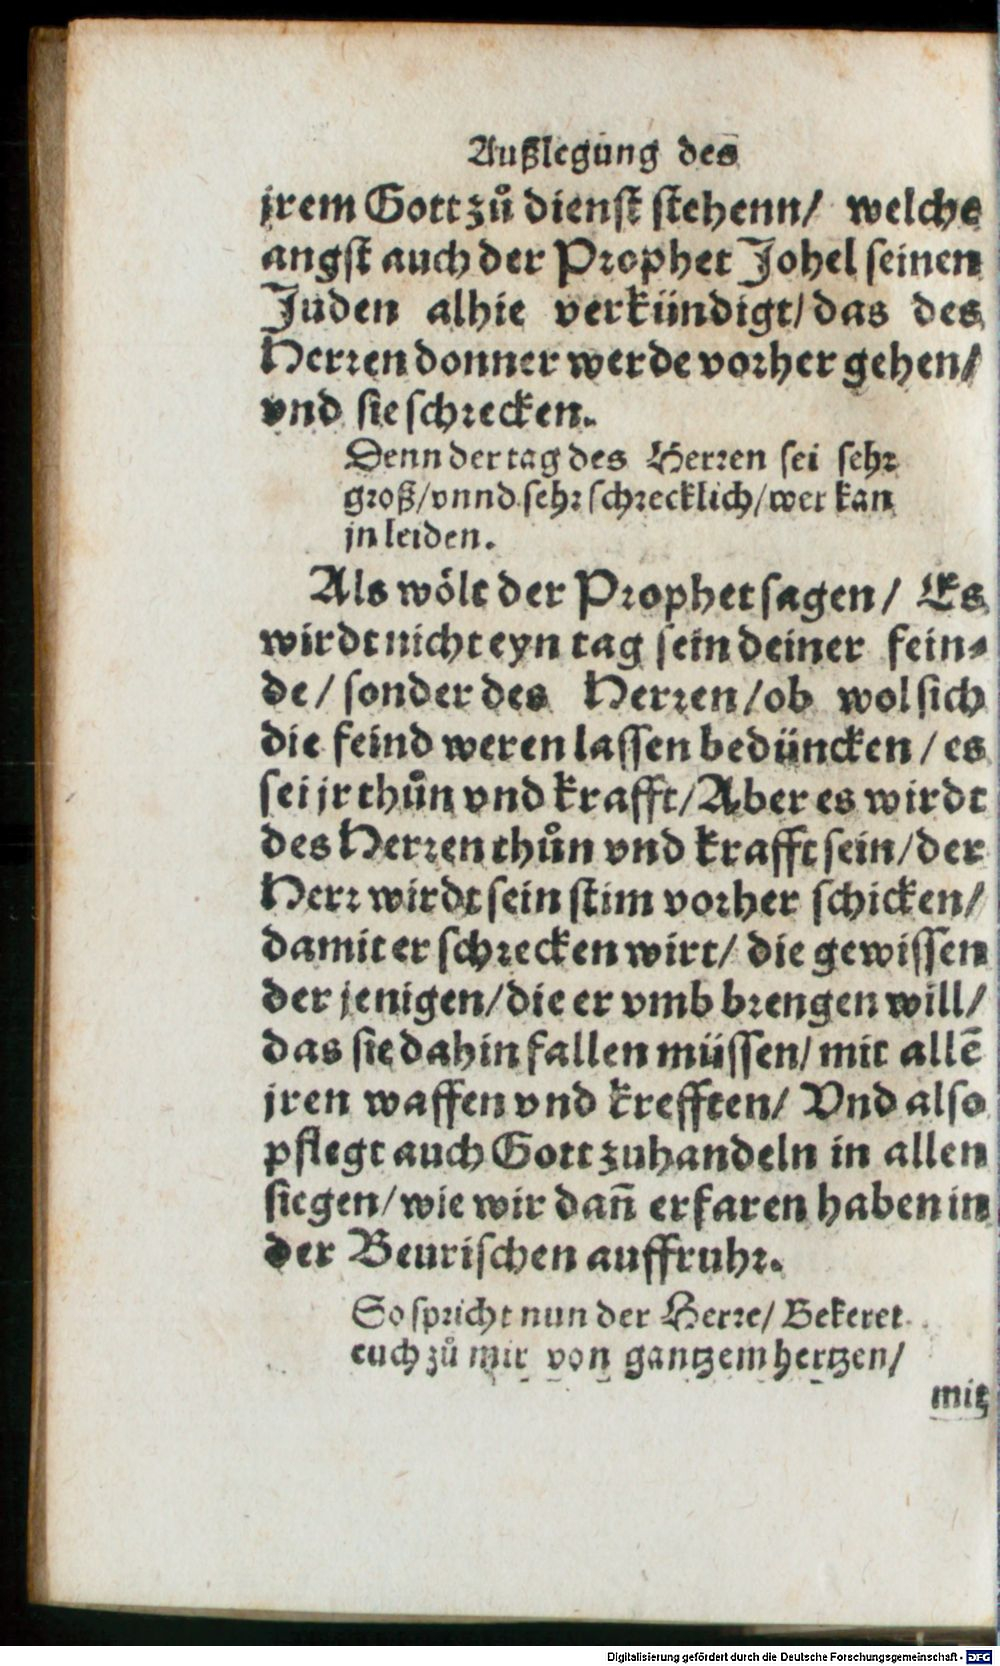 Außlegung des
jrem Gott zů dienst stehenn/ welche
angst auch der Prophet Johel seinen
Juden alhie verkündigt/ das des
Herren donner werde vorher gehen/
vnd sie schrecken.
Denn der tag des Herren sei sehr
groß/ vnnd sehr schrecklich/ wer kan
jn leiden.
Als wölt der Prophet sagen/ Es
wirdt nicht eyn tag sein deiner fein⸗
de/ sonder des Herren/ ob wol sich
die feind weren lassen bedüncken/ es
sei jr thůn vnd krafft/ Aber es wirdt
des Herren thůn vnd krafft sein/ der
Herr wirdt sein stim vorher schicken/
damit er schrecken wirt/ die gewissen
der jenigen/ die er vmb brengen will/
das sie dahin fallen müssen/ mit allē
jren waffen vnd krefften/ Vnd also
pflegt auch Gott zuhandeln in allen
siegen/ wie wir dañ erfaren haben in
der Beurischen auffruhr.
So spricht nun der Herre/ Bekeret
euch zů mir von gantzem hertzen/
mit
Digitalisierung gefördert durch die Deutsche Forschungsgemeinschaft - DFG